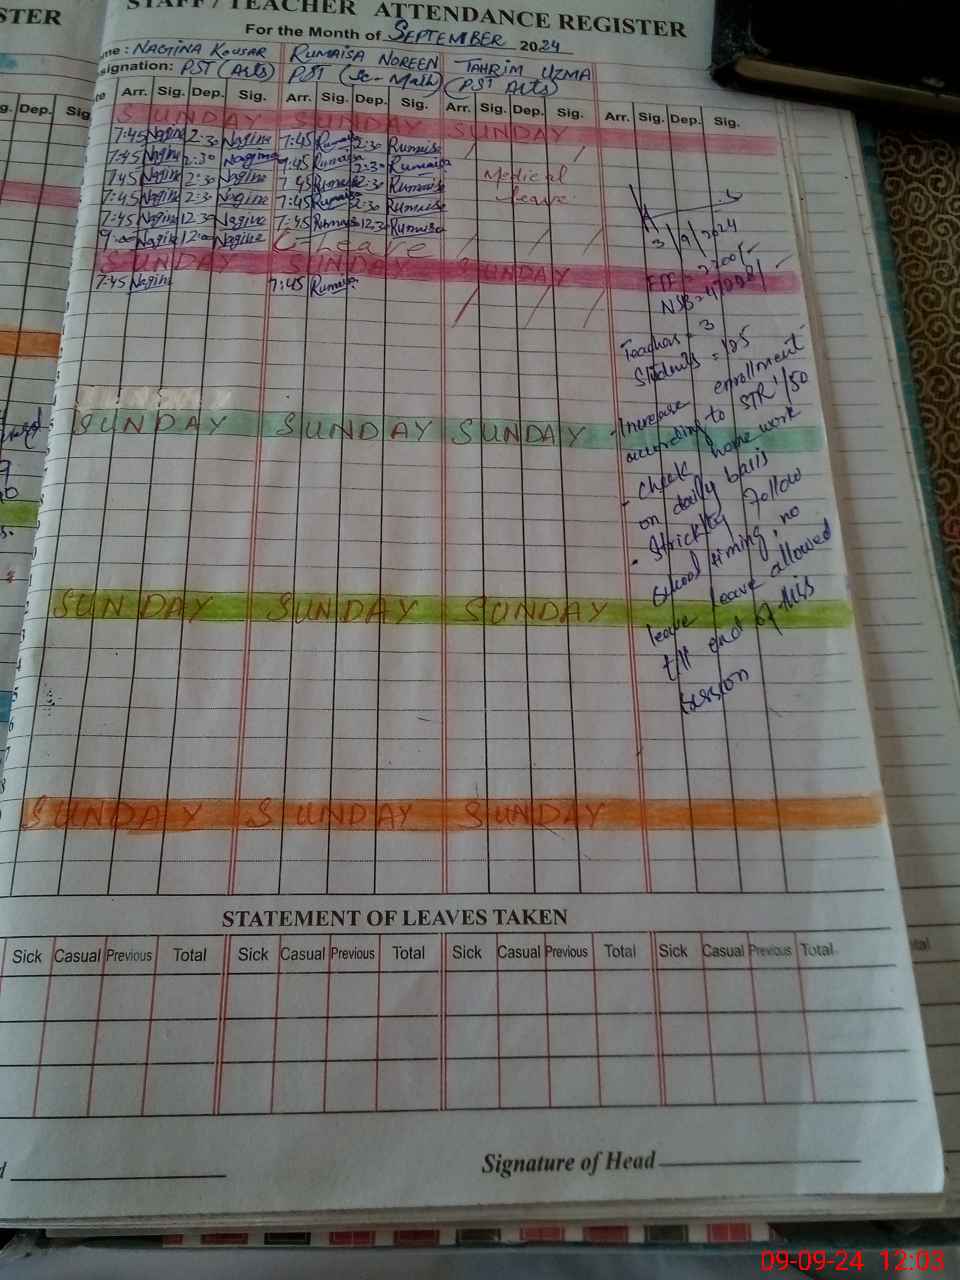 STER
STAFF / TEACHER ATTENDANCE REGISTER
For the Month of SEPTEMBER 2024
me : NAGINA KOUSAR RUMAISA NOREEN TAHRIM UZMA
signation: PST (Arts) PST (Sc-Math) (PST Arts)
g. Dep. Sig te Arr. Sig. Dep. Sig. Arr. Sig. Dep. Sig. Arr. Sig. Dep. Sig. Arr. Sig. Dep. Sig.
SUNDAY SUNDAY SUNDAY
7:45 Nagina 2:30 Nagina 7:45 Rumaisa 2:30 Rumaisa
7:45 Nagina 2:30 Nagina 7:45 Rumaisa 2:30 Rumaisa
7:45 Nagina 2:30 Nagina 7:45 Rumaisa 2:30 Rumaisa Medical
7:45 Nagina 2:30 Nagina 7:45 Rumaisa 2:30 Rumaisa leave
7:45 Nagina 12:30 Nagina 7:45 Rumaisa 12:30 Rumaisa
9:00 Nagina 12:00 Nagina C-Leave
SUNDAY SUNDAY SUNDAY
7:45 Nagina 7:45 Rumaisa
3/9/2024
Teachers = 3
Students = 125
- Increase enrollment
according to STR 1/50
- Check home work
on daily basis
- Stricktly Follow
school timing, no
leave leave allowed
till end of this
session
SUNDAY SUNDAY SUNDAY
SUNDAY SUNDAY SUNDAY
SUNDAY SUNDAY SUNDAY
STATEMENT OF LEAVES TAKEN
Sick Casual Previous Total Sick Casual Previous Total Sick Casual Previous Total Sick Casual Previous Total
Signature of Head
09-09-24 12:03